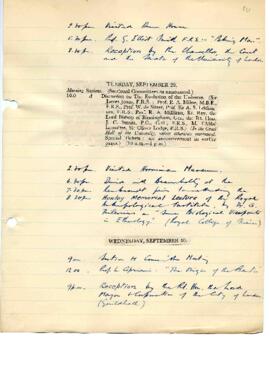 Visited Down House.
5.30 p.m. Prof. G. Elliot Smith F.R.S. — "Peking Man".
8.30 p.m. Reception by the Chancellor, the Court
and the Senate of the University of London
TUESDAY, SEPTEMBER 29.
Morning Session. (Sectional Committees as announced.)
10.0 Discussion on The Evolution of the Universe. (Sir
James Jeans, F.R.S.; Prof. E. A. Milne, M.B.E.,
F.R.S.; Prof. W. de Sitter; Sir Arthur S. Eddington,
F.R.S.; Prof. R. A. Millikan; Rt. Rev. the
Lord Bishop of Birmingham; Gen. the Rt. Hon.
J. C. Smuts, P.C., C.H., F.R.S.; M. l'Abbé
Lemaître; Sir Oliver Lodge, F.R.S.) (In the Great
Hall of the University, unless otherwise
Special Tickets:
(10 a.m.-1 p.m.)
p.m. Visited Museum.
p.m. Dined and at the
7.30 p.m.
8.30 p.m. Huxley Memorial Lecture of the Royal
Anthropological Institute by
on "Some Biological Viewpoints
in Ethnology." (Royal College of
WEDNESDAY, SEPTEMBER 30.
9 a.m. Section H Comm. Meeting
12.00 Prof. "The Origin of the
9 p.m. Reception by the Rt. Hon. the Lord
Mayor & Corporation of the City of London
(Guildhall)